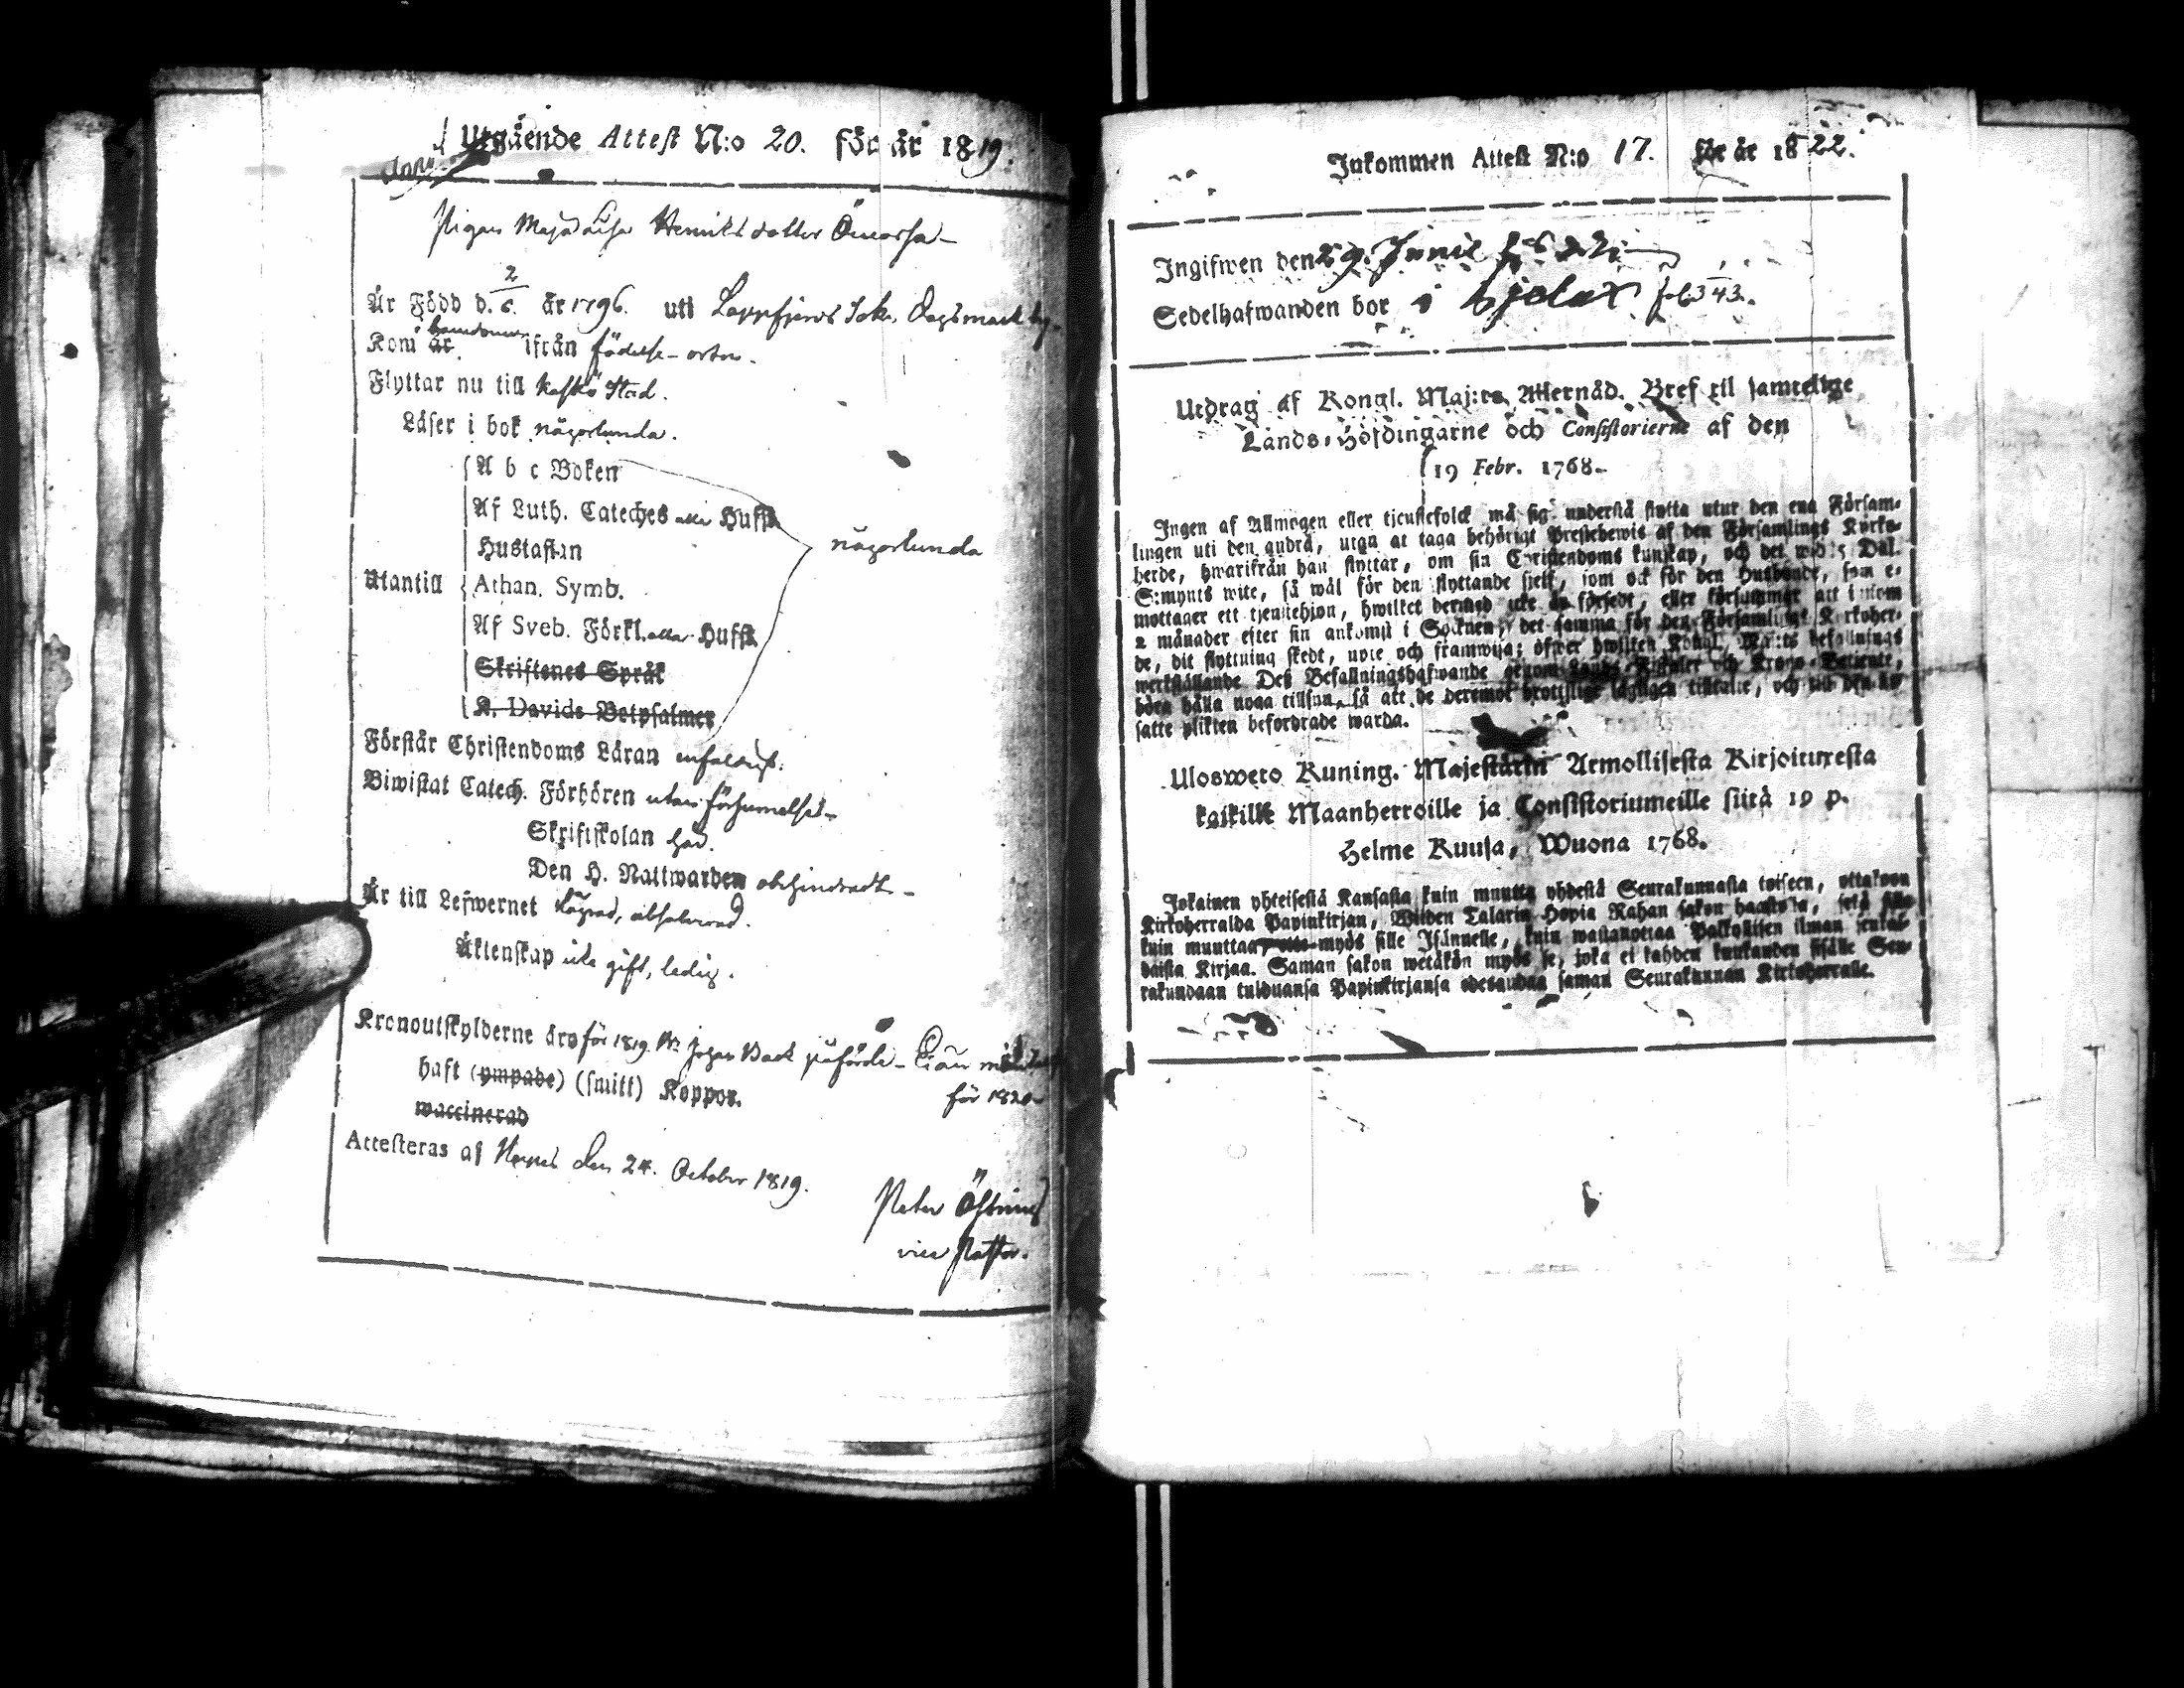 Utgående Attest N:o 20. för år 1819.
Pigan Maja Lisa Henriksdotter
Är Född d. 2/6. år 1796. uti Lappfjerds Sokn, Dagsmark by.
Kom år. barndomen ifrån födelse-orten.
Flyttar nu till Kaskö Stad.
Läser i bok någorlunda.
A b c Boken
Af Luth. Cateches eller Huffst
Hustaflan någorlunda
Utantill Athan. Symb.
Af Sveb. Förkl. eller Huffst
Skriftenes Språk
K. Davids Botpsalmer
Förstår Christendoms Läran enfaldigt.
Biwistat Catech. Förhören utan försumelse.
Skriftskolan
Den H. Nattwarden obehindradt
Är till Lefwernet absolverad.
Äktenskap icke gift, ledig.
Kronoutskylderne äro för 1819 Johan Back påförde
för 1820
haft (ympade) (smitt) Koppor.
waccinerad
Attesteras af Nerpes den 24. October 1819.
Peter
vice Pastor.
Inkommen Attest N:o 17. för år 1822.
Ingifwen den 29. Junii
Sedelhafwanden bor i Tjelax fol. 343.
Utdrag af Kongl. Maj:ts Allernåd. Bref til samtelige
Lands-Höfdingarne och Consistorierne af den
19 Febr. 1768.
Ingen af Allmogen eller tjenstefolck må sig understå flytta utur den ena Försam-
lingen uti den andra, utan at taga behörigt Prestebewis af den Församlings Kyrko-
herde, hwarifrån han flyttar, om sin Christendoms kunskap, och det wid 5 Dal.
S:mynts wite, så wäl för den flyttande sjelf, som ock för den Husbonde, som e-
mottager ett tjenstehjon, hwilket dermed icke är försedt, eller försummar att innom
2 månader efter sin ankomst i Socknen, det samma för den Församlings Kyrkoher-
de, dit flyttning skedt, upte och framwisa; öfwer hwilken Kongl. Maj:ts befallnings
werkställande Deß Befallningshafwande genom Lands-Fiskaler och Krono-Betiente,
böra hålla noga tillsyn, så att de deremot brottslige lagligen tilltalte, och till den ut-
satte plikten befordrade warda.
Ulosweto Kuning. Majestätin Armollisesta Kirjoituxesta
kaikille Maanherroille ja Consistoriumeille siitä 19 p.
Helme Kuusa, Wuona 1768.
Jokainen yhteisestä Kansasta kuin muutta yhdestä Seurakunnasta toiseen, ottakoon
Kirkoherralda Papinkirjan, Wijden Talarin Hopia Rahan sakon haastolla, sekä sille
kuin muuttaa, myös sille Isännelle, kuin wastanottaa Palkollisen ilman senkal-
daista Kirjaa. Saman sakon wetäkön myös se, joka ei kahden kuukauden sisälle Seu-
rakundaan tulduansa Papinkirjansa edesanna saman Seurakunnan Kirkoherralle.